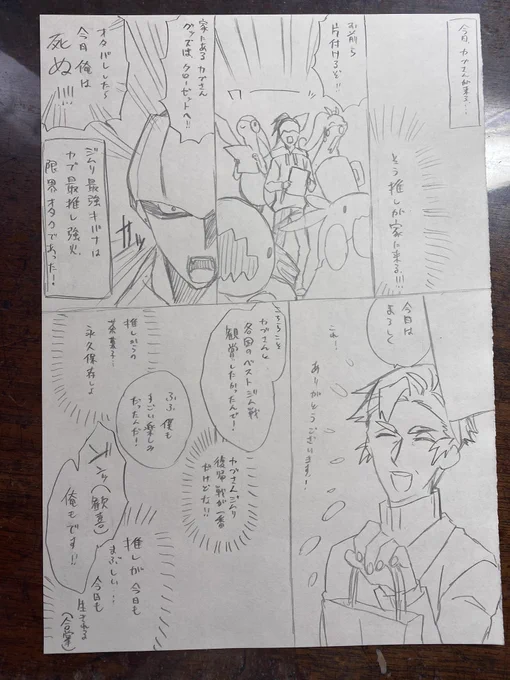 今日、カブさんが来る…
そう推しが家に来る!!!
お前ら
片付けるぞ!!
家にあるカブさん
グッズはクローゼットへ!!
オタバレしたら
今日俺は
死ぬ!!!
ジムリ最強キバナは
カブ最推し強火
限界オタクであった!
今日は
よろしく
ありがとうございます!
こちらこそ
カブさんと
各国のベストジム戦
観賞したかったんで!
カブさんジムリ
復帰戦が一番
だけどな!!
ふふ僕も
すごい楽しみ
だったんだ!
推しからの
茶菓子…
永久保存しよ
(歓喜)
俺もです!!
推しが今日も
まぶしい…
今日も
生きれる
(合掌)